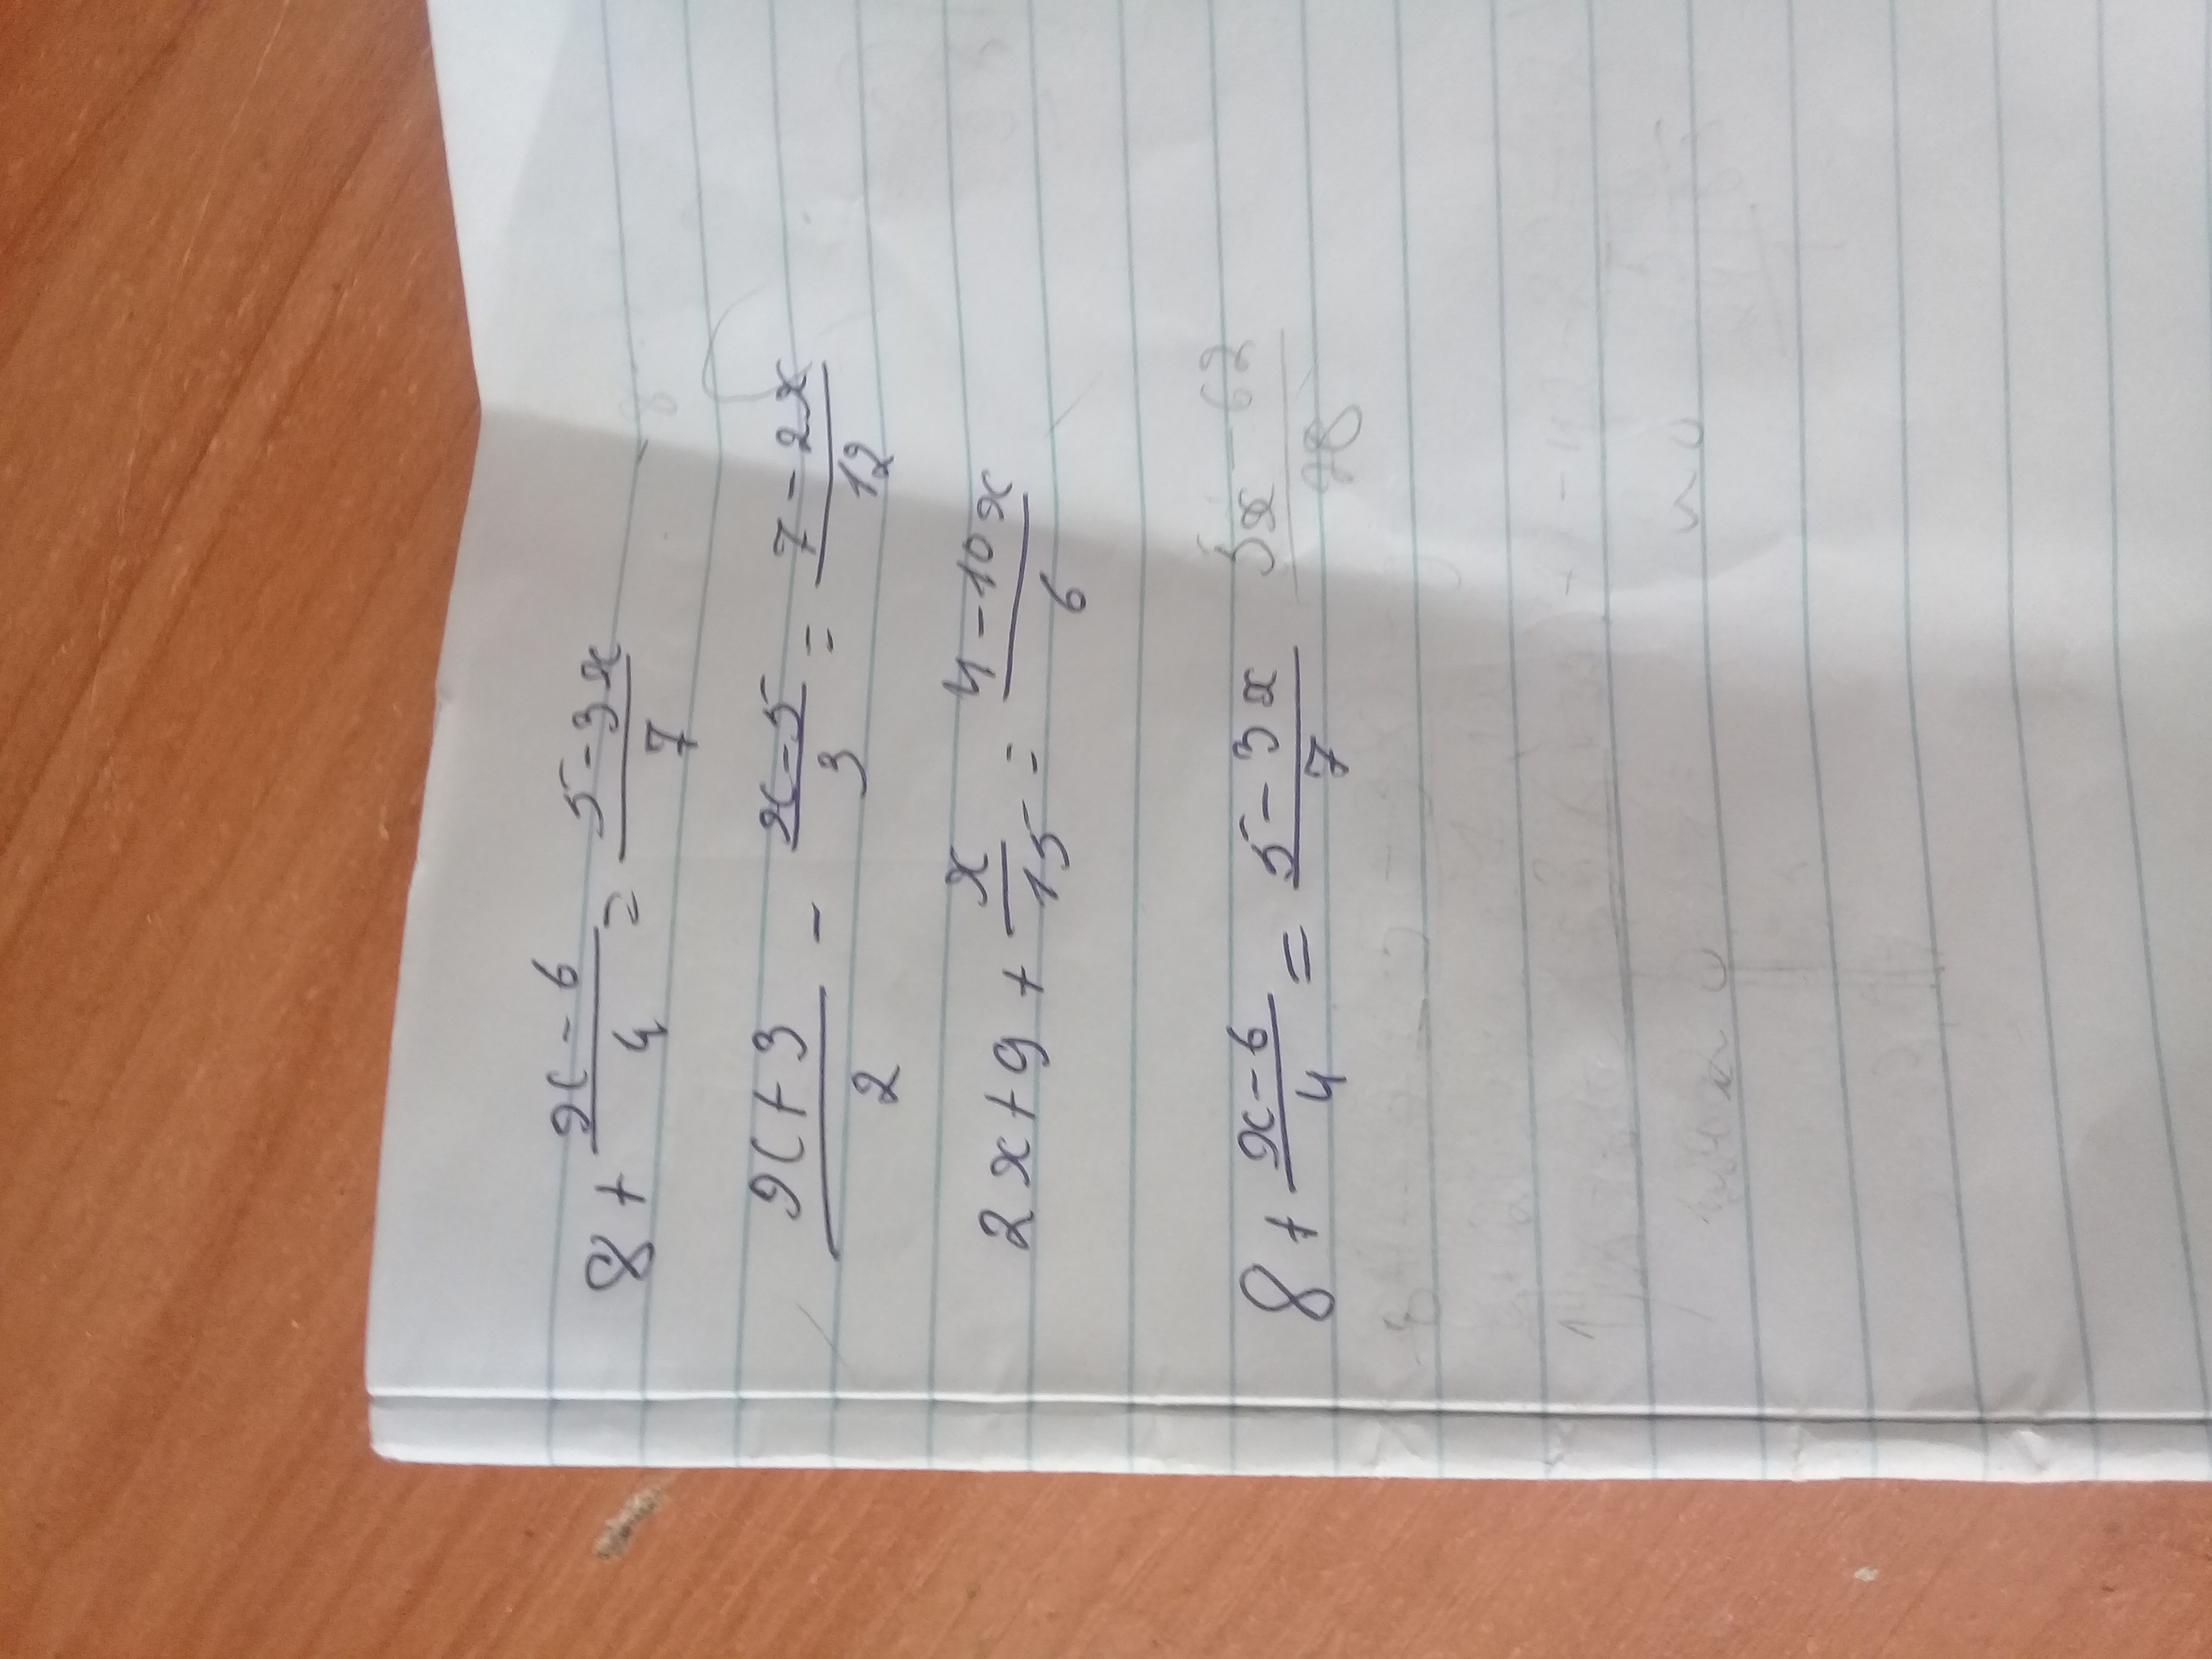 8 + \frac{x-6}{4} = \frac{5-3x}{7}
\frac{x+3}{2} - \frac{x-5}{3} = \frac{7-2x}{12}
2x+9+\frac{x}{15} = \frac{4-10x}{6}
8 + \frac{x-6}{4} = \frac{5-3x}{7}